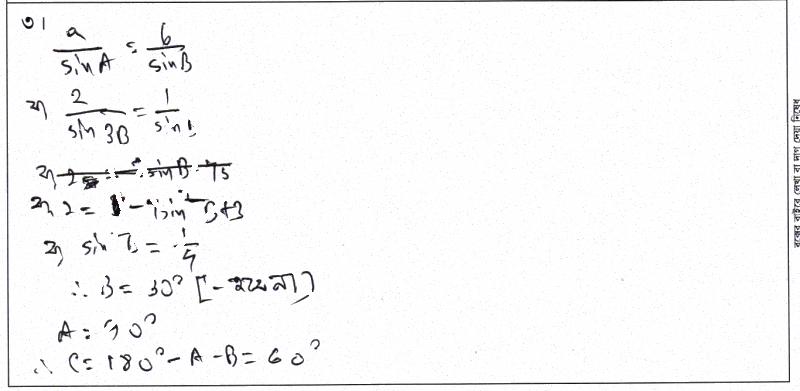 ৩।
a/sin A = b/sin B
বা, 2/sin 3B = 1/sin B
বা, 2 = - 4 sin² B + 3
বা, sin² B = 1/4
∴ B = 30° [- হবে না]
A = 90°
∴ C = 180° - A - B = 60°
বক্সের বাইরে লেখা বা দাগ দেয়া নিষেধ